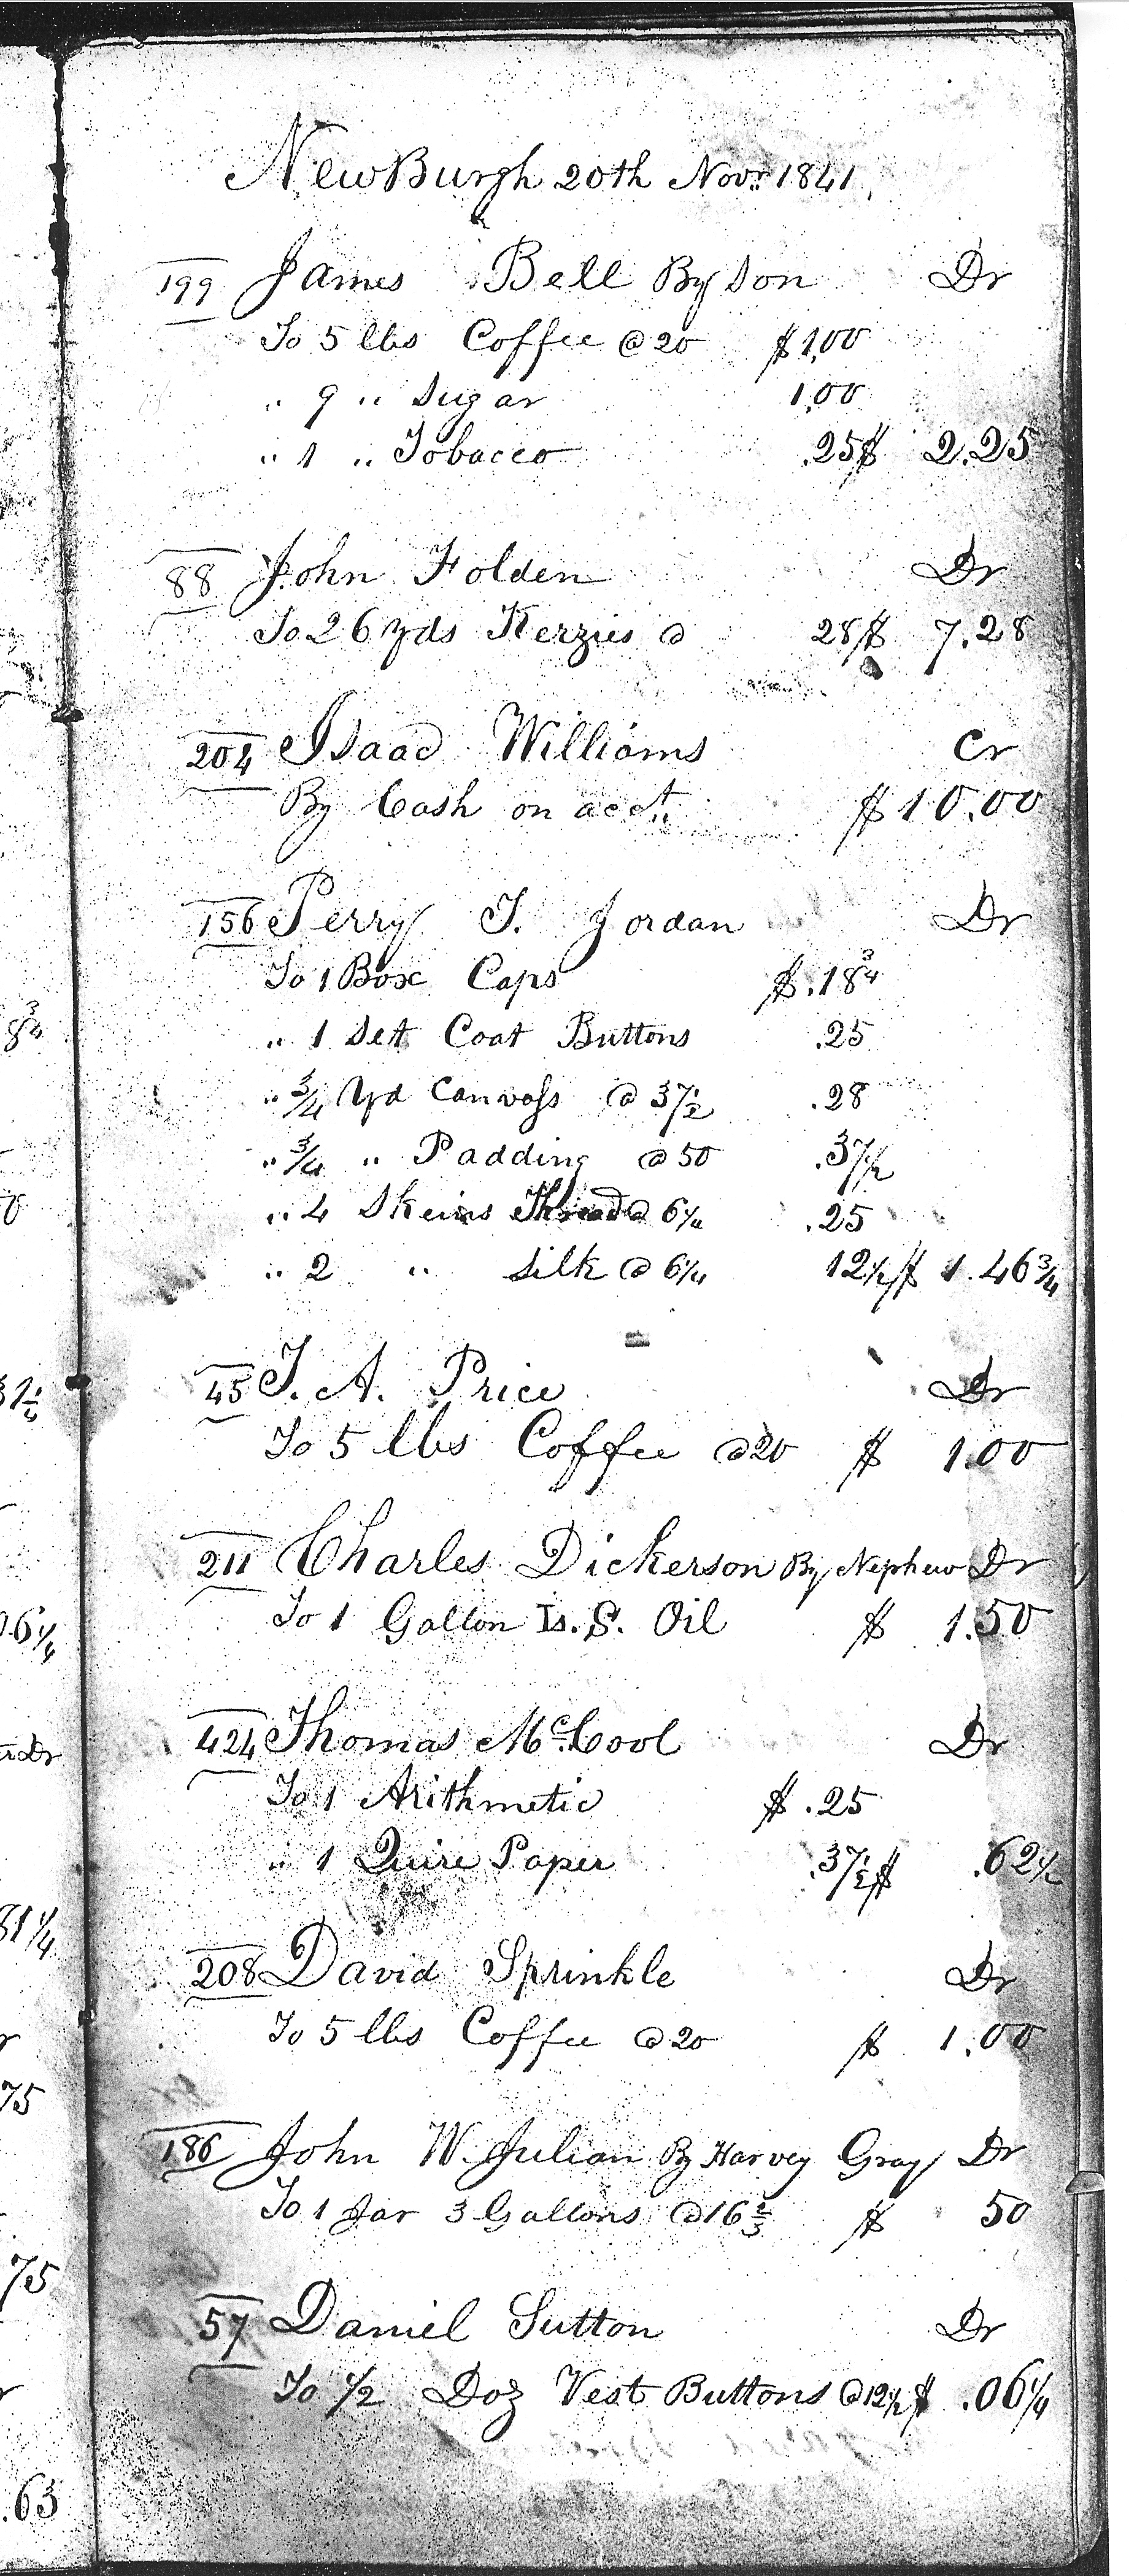 NewBurgh 20th Novr 1841
199 James Bell By Son Dr
To 5 lbs Coffee @ 20 $1,00
" 9 " Sugar 1,00
" 1 " Tobacco .25 $ 2.25
88 John Folden Dr
To 26 yds Kerzies @ 28 $ 7.28
204 Isaac Williams Cr
By Cash on acct. $10.00
156 Perry T. Jordan Dr
To 1 Box Caps $.18¾
" 1 Set Coat Buttons .25
" ¾ Yd Canvass @ 37½ .28
" ¾ " Padding @ 50 .37½
" 4 Skeins Thread @ 6¼ .25
" 2 " Silk @ 6¼ 12½ $ 1.46¾
45 T. A. Price Dr
To 5 lbs Coffee @ 20 $ 1.00
211 Charles Dickerson By Nephew Dr
To 1 Gallon Is. S. Oil $ 1.50
424 Thomas McCool Dr
To 1 Arithmetic $ .25
" 1 Quire Paper .37½ $ .62½
208 David Sprinkle Dr
To 5 lbs Coffee @ 20 $ 1.00
186 John W. Julian By Harvey Gray Dr
To 1 Jar 3 Gallons @ 16⅔ $ 50
57 Daniel Sutton Dr
To ½ Doz Vest Buttons @ 12½ $ .06¼
8¾
06¼
Dr
81¼
75
75
.63